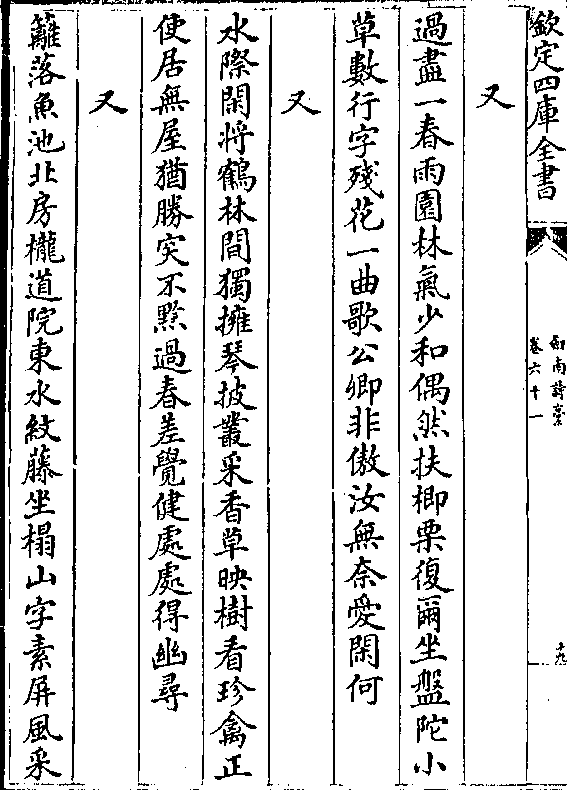 欽定四庫全書
劍南詩稾
卷六十一
十九
又
過盡一春雨園林氣少和偶然扶楖栗復爾坐盤陀小
草數行字殘花一曲歌公卿非傲汝無奈愛閑何
又
水際閑將鶴林間獨擁琴披叢采香草映樹看珍禽正
使居無屋猶勝突不黔過春差覺健處處得幽尋
又
籬落魚池北房櫳道院東水紋藤坐榻山字素屏風采